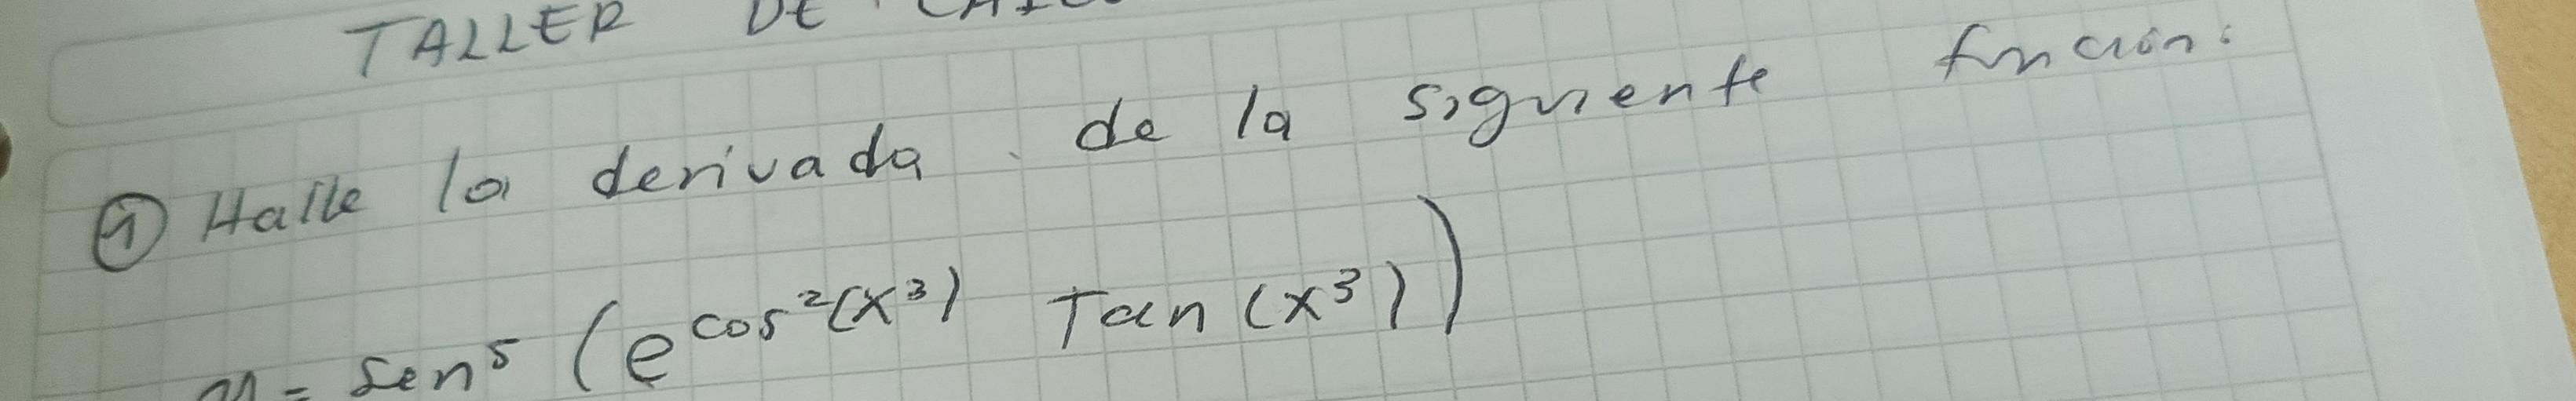 TALLER DE
① Halle la derivada de la siguiente función:
y = Sen⁵ (e^cos²(x³) Tan (x³))